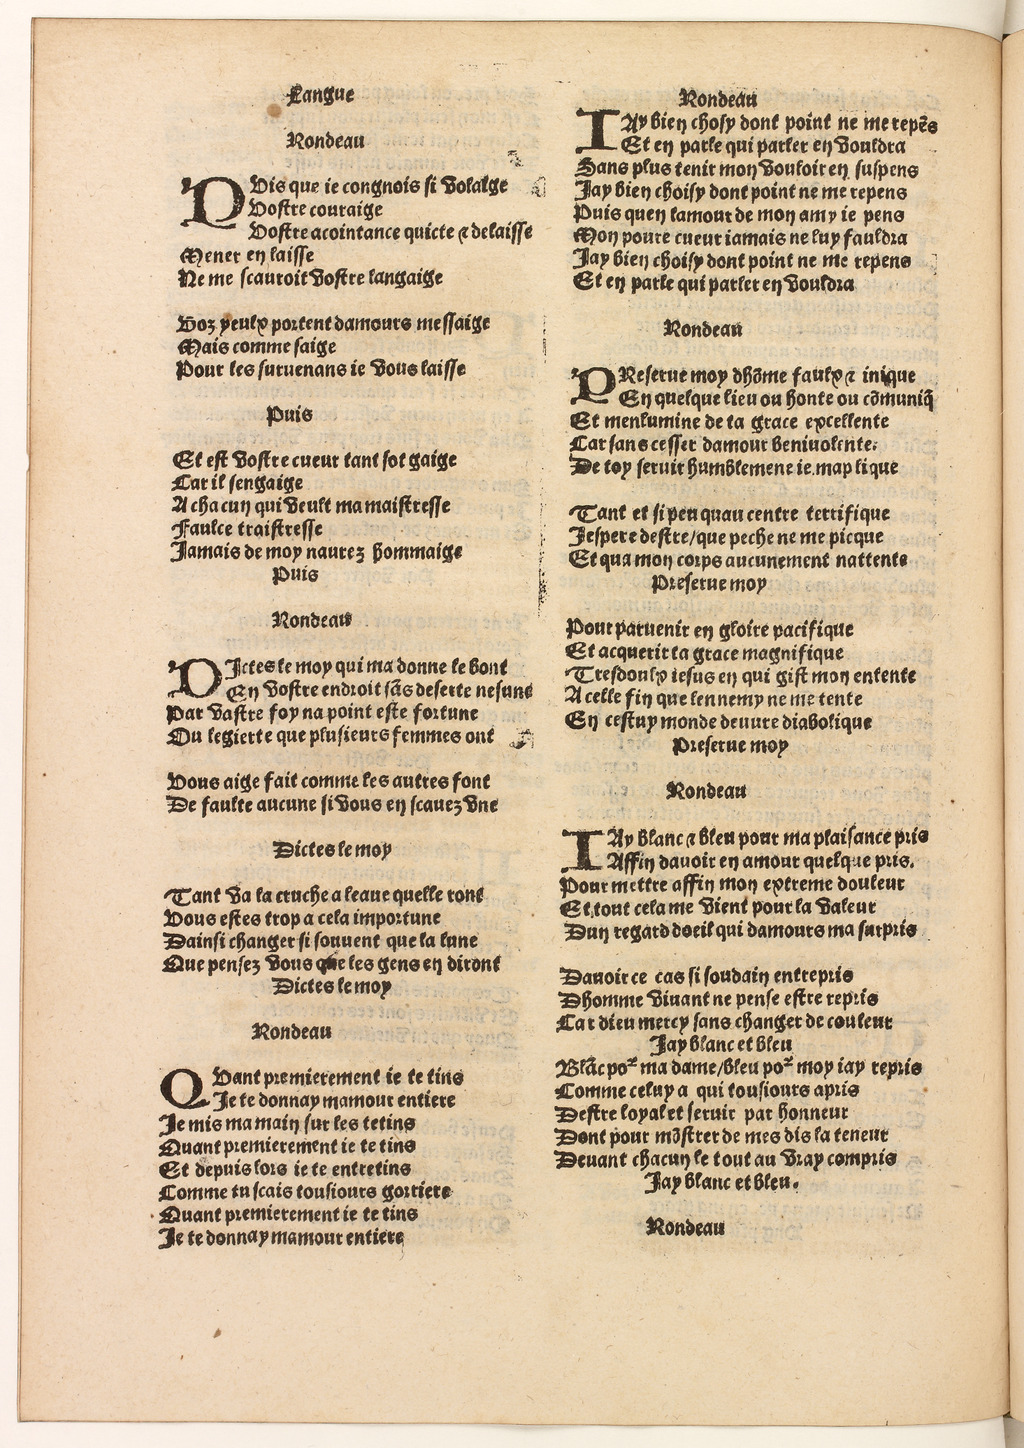 Langue
Rondeau
PUis que ie congnois si volaige
Vostre couraige
Vostre acointance quicte ⁊ delaisse
Mener en laisse
Ne me scauroit vostre langaige
Voz yeulx portent damours messaige
Mais comme saige
Pour les suruenans ie vous laisse
Puis
Et est vostre cueur tant sot gaige
Car il sengaige
A chacun qui veult ma maistresse
Faulce traistresse
Jamais de moy naurez hommaige
Puis
Rondeau
DIctes le moy qui ma donne le bont
En vostre endroit sãs deserte nesune
Par vastre foy na point este fortune
Ou legierte que plusieurs femmes ont
Vous aige fait comme les autres font
De faulte aucune si vous en scauez vne
Dictes le moy
Tant va la cruche a leaue quelle ront
Vous estes trop a cela importune
Dainsi changer si souuent que la lune
Que pensez vous que les gens en diront
Dictes le moy
Rondeau
QVant premierement ie te tins
Je te donnay mamour entiere
Je mis ma main sur les tetins
Quant premierement ie te tins
Et depuis lors ie te entretins
Comme tu scais tousiours gorriere
Quant premierement ie te tins
Je te donnay mamour entiere
Rondeau
IAy bien choisy dont point ne me repẽs
Et en parle qui parler en vouldra
Sans plus tenir mon vouloir en suspens
Jay bien choisy dont point ne me repens
Puis quen lamour de mon amy ie pens
Mon poure cueur iamais ne luy fauldra
Jay bien choisy dont point ne me repens
Et en parle qui parler en vouldra
Rondeau
PReserue moy dhõme faulx ⁊ inique
En quelque lieu ou honte ou cõmuniq̃
Et menlumine de ta grace excellente
Car sans cesser damour beniuolente.
De toy seruir humblemene ie maplique
Tant et si peu quau centre terrifique
Jespere destre/que peche ne me picque
Et qua mon corps aucunement nattente
Preserue moy
Pour paruenir en gloire pacifique
Et acquerir ta grace magnifique
Tresdoulx iesus en qui gist mon entente
A celle fin que lennemy ne me tente
En cestuy monde deuure diabolique
Preserue moy
Rondeau
IAy blanc ⁊ bleu pour ma plaisance pris
Affin dauoir en amour quelque pris.
Pour mettre affin mon extreme douleur
Et tout cela me vient pour la valeur
Dun regard doeil qui damours ma surpris
Dauoir ce cas si soudain entrepris
Dhomme viuant ne pense estre repris
Car dieu mercy sans changer de couleur
Jay blanc et bleu
Blãc poꝛ̃ ma dame/bleu poꝛ̃ moy iay repris
Comme celuy a qui tousiours apris
Destre loyal et seruir par honneur
Dont pour mõstrer de mes dis la teneur
Deuant chacun le tout au vray compris
Jay blanc et bleu.
Rondeau